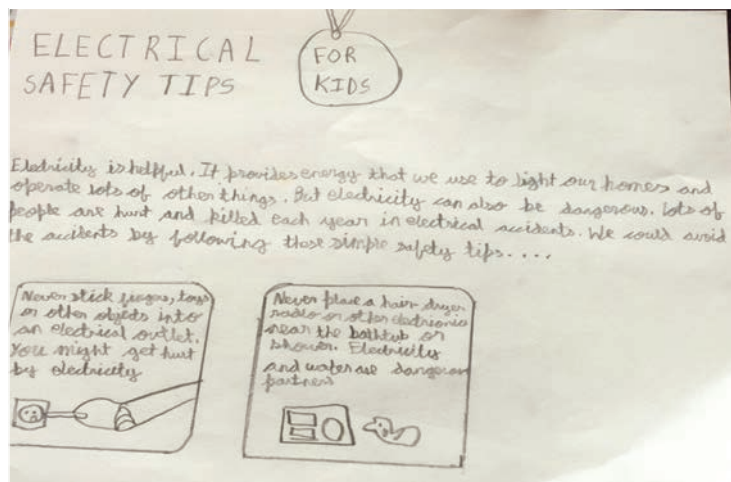 ELECTRICAL
SAFETY TIPS
FOR
KIDS
Electricity is helpful. It provides energy that we use to light our homes and
operate lots of other things. But electricity can also be dangerous. Lots of
people are hurt and killed each year in electrical accidents. We could avoid
the accidents by following these simple safety tips....
Never stick fingers, toys
or other objects into
an electrical outlet.
You might get hurt
by electricity
Never place a hair-dryer
radio or other electrionic
near the bathtub or
shower. Electricity
and water are dangerou
partners